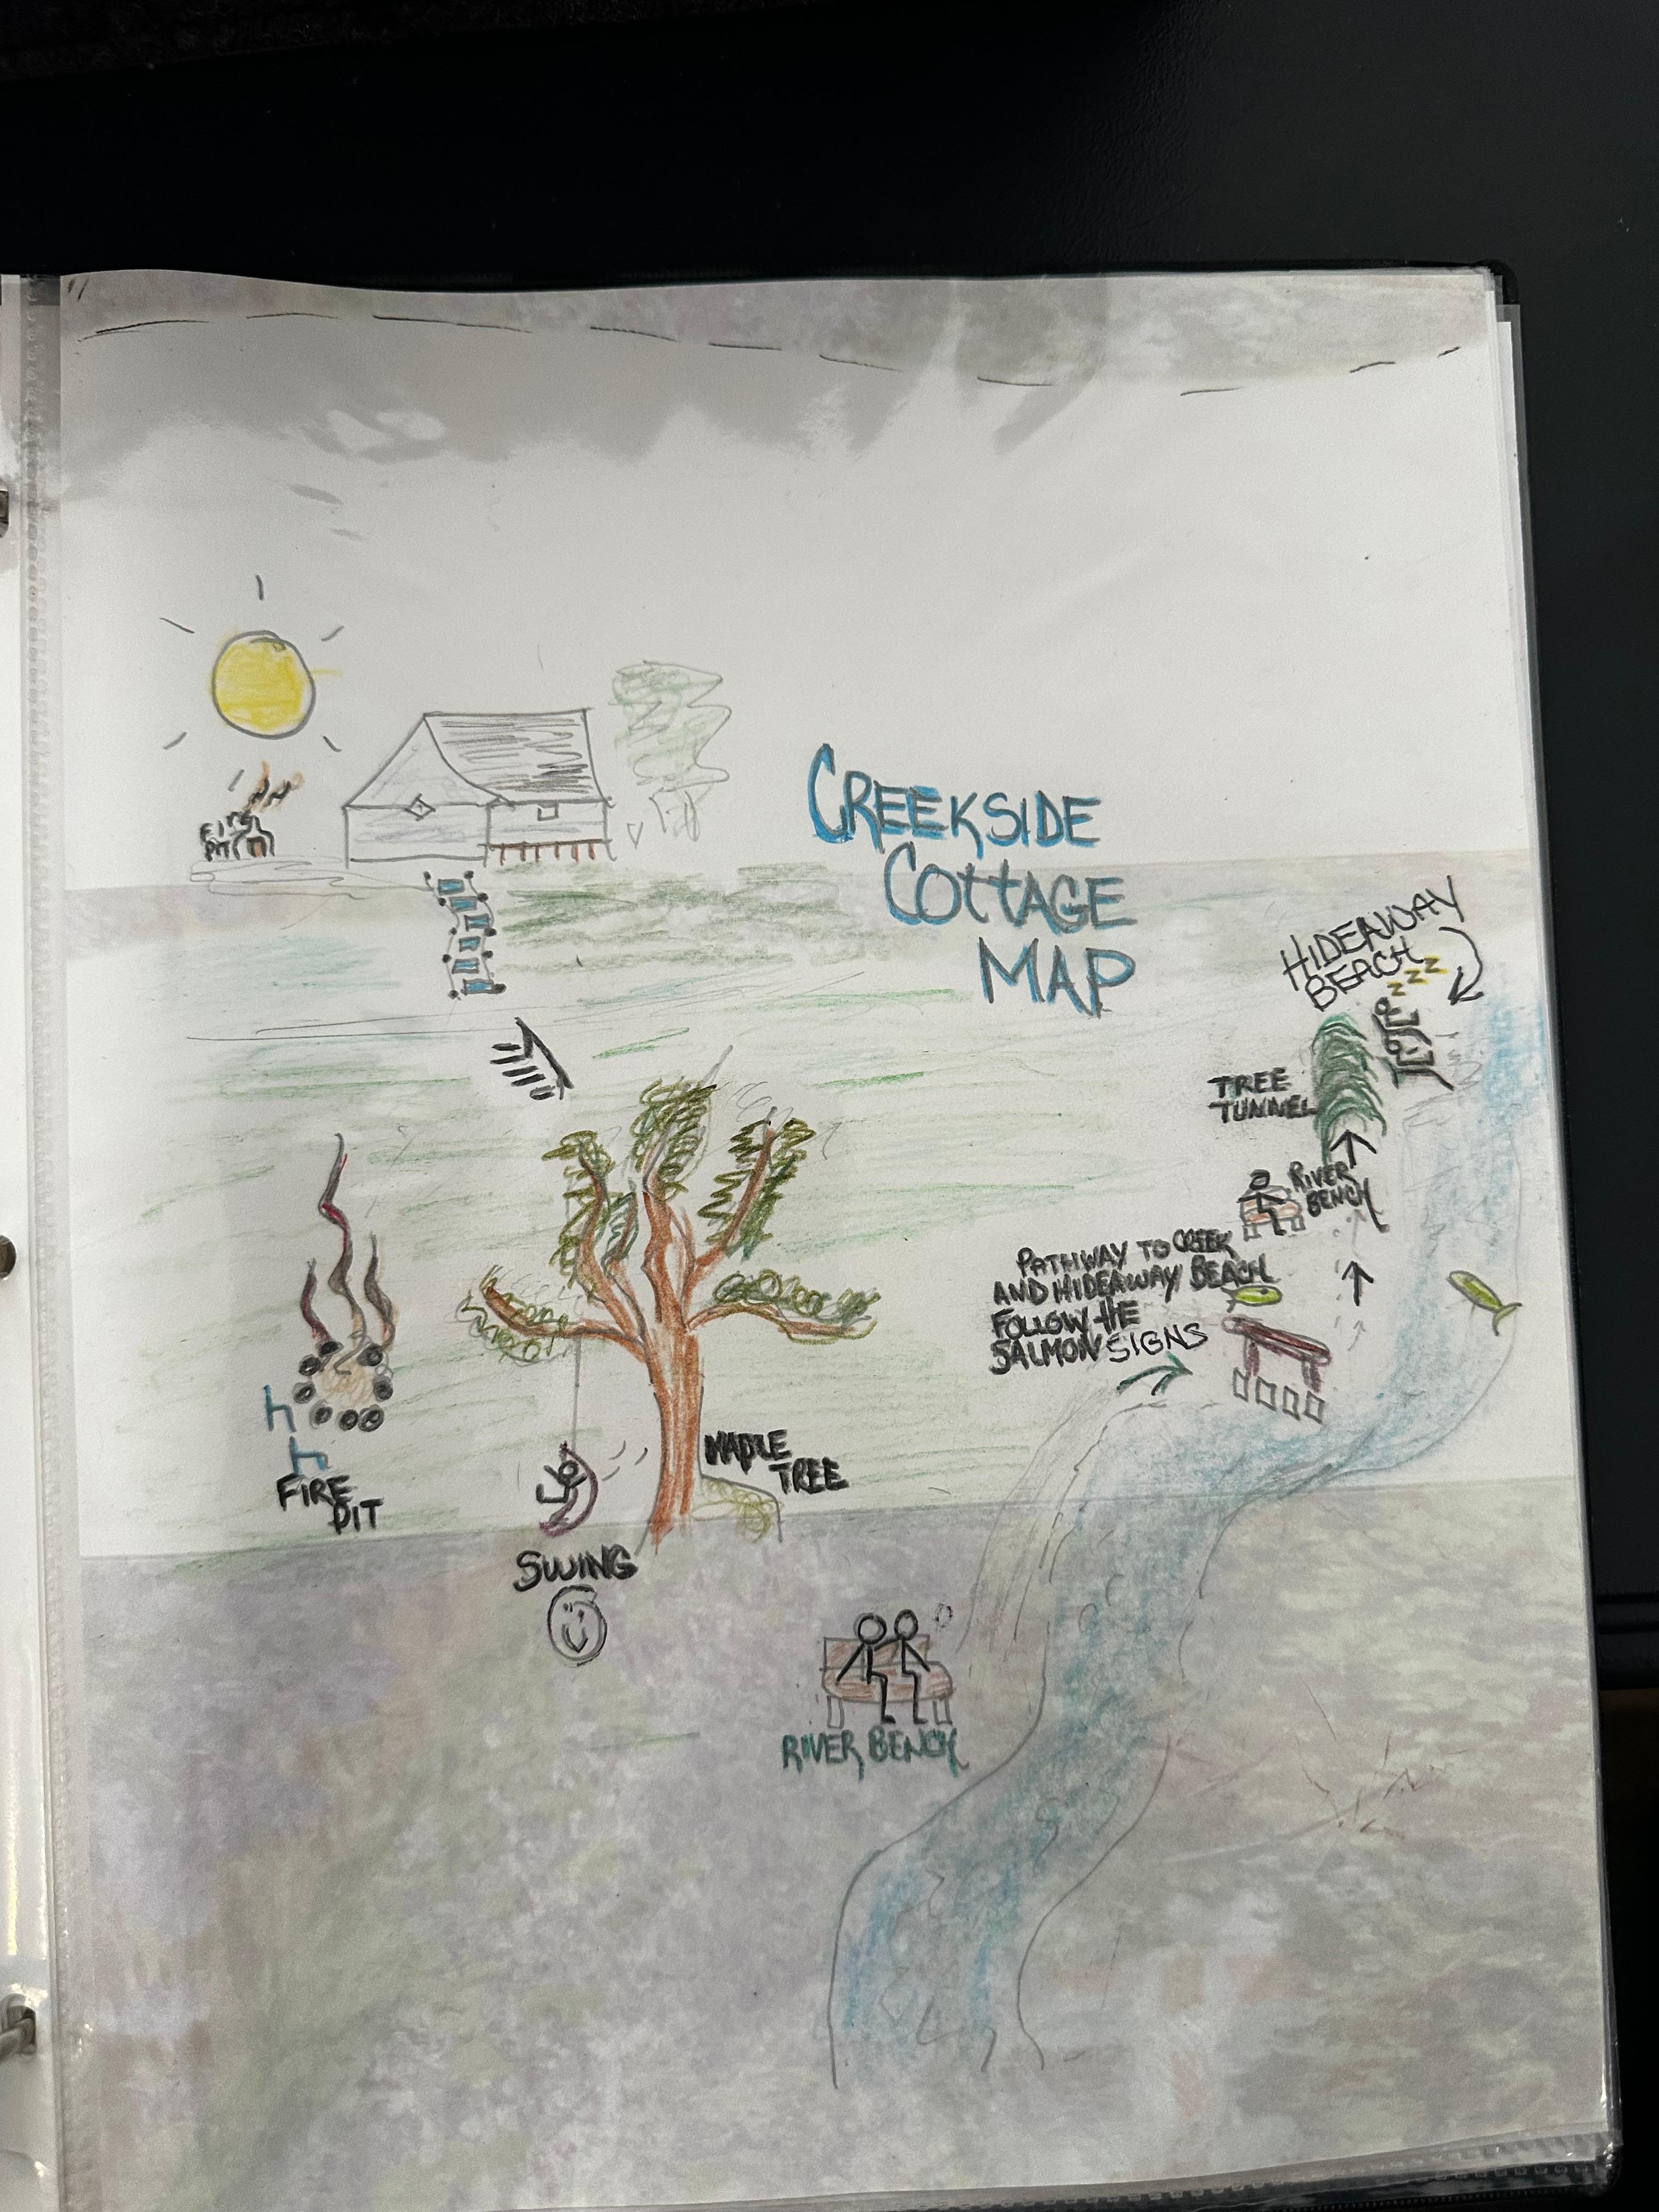 FIRE
PIT
CREEKSIDE
COTTAGE
MAP
HIDEAWAY
BEACH
ZZZ
TREE
TUNNEL
RIVER
BENCH
PATHWAY TO CREEK
AND HIDEAWAY BEACH
FOLLOW THE
SALMON SIGNS
MAPLE
TREE
FIRE
PIT
SWING
RIVER BENCH